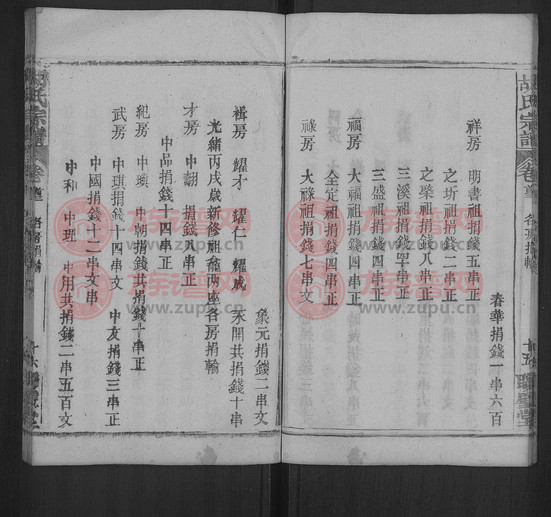 胡氏宗譜
卷首
各房捐輸
十五
春華捐錢一串六百
祥房 明書祖捐錢五串正
之圻祖捐錢二串正
之槃祖捐錢八串正
三溪祖捐錢四串正
三盛祖捐錢四串正
福房 大福祖捐錢四串正
全定祖捐錢四串正
祿房 大祿祖捐錢七串文
象元捐錢二串文
緝房 耀才 耀仁 耀成 禾開共捐錢十串
光緒丙戌歲新修祖龕兩座各房捐輸
才房 中朝 捐錢八串正
中品捐錢十四串正
紀房 中瑣 中朝捐錢共捐錢十串正
武房 中琪捐錢十四串文 中友捐錢三串正
中國捐錢十二串文
中和 中理 中用共捐錢二串五百文
胡氏宗譜
卷首
各房捐輸
十六
族谱网
www.zupu.cn
族谱网
www.zupu.cn
族谱网
www.zupu.cn
族谱网
www.zupu.cn